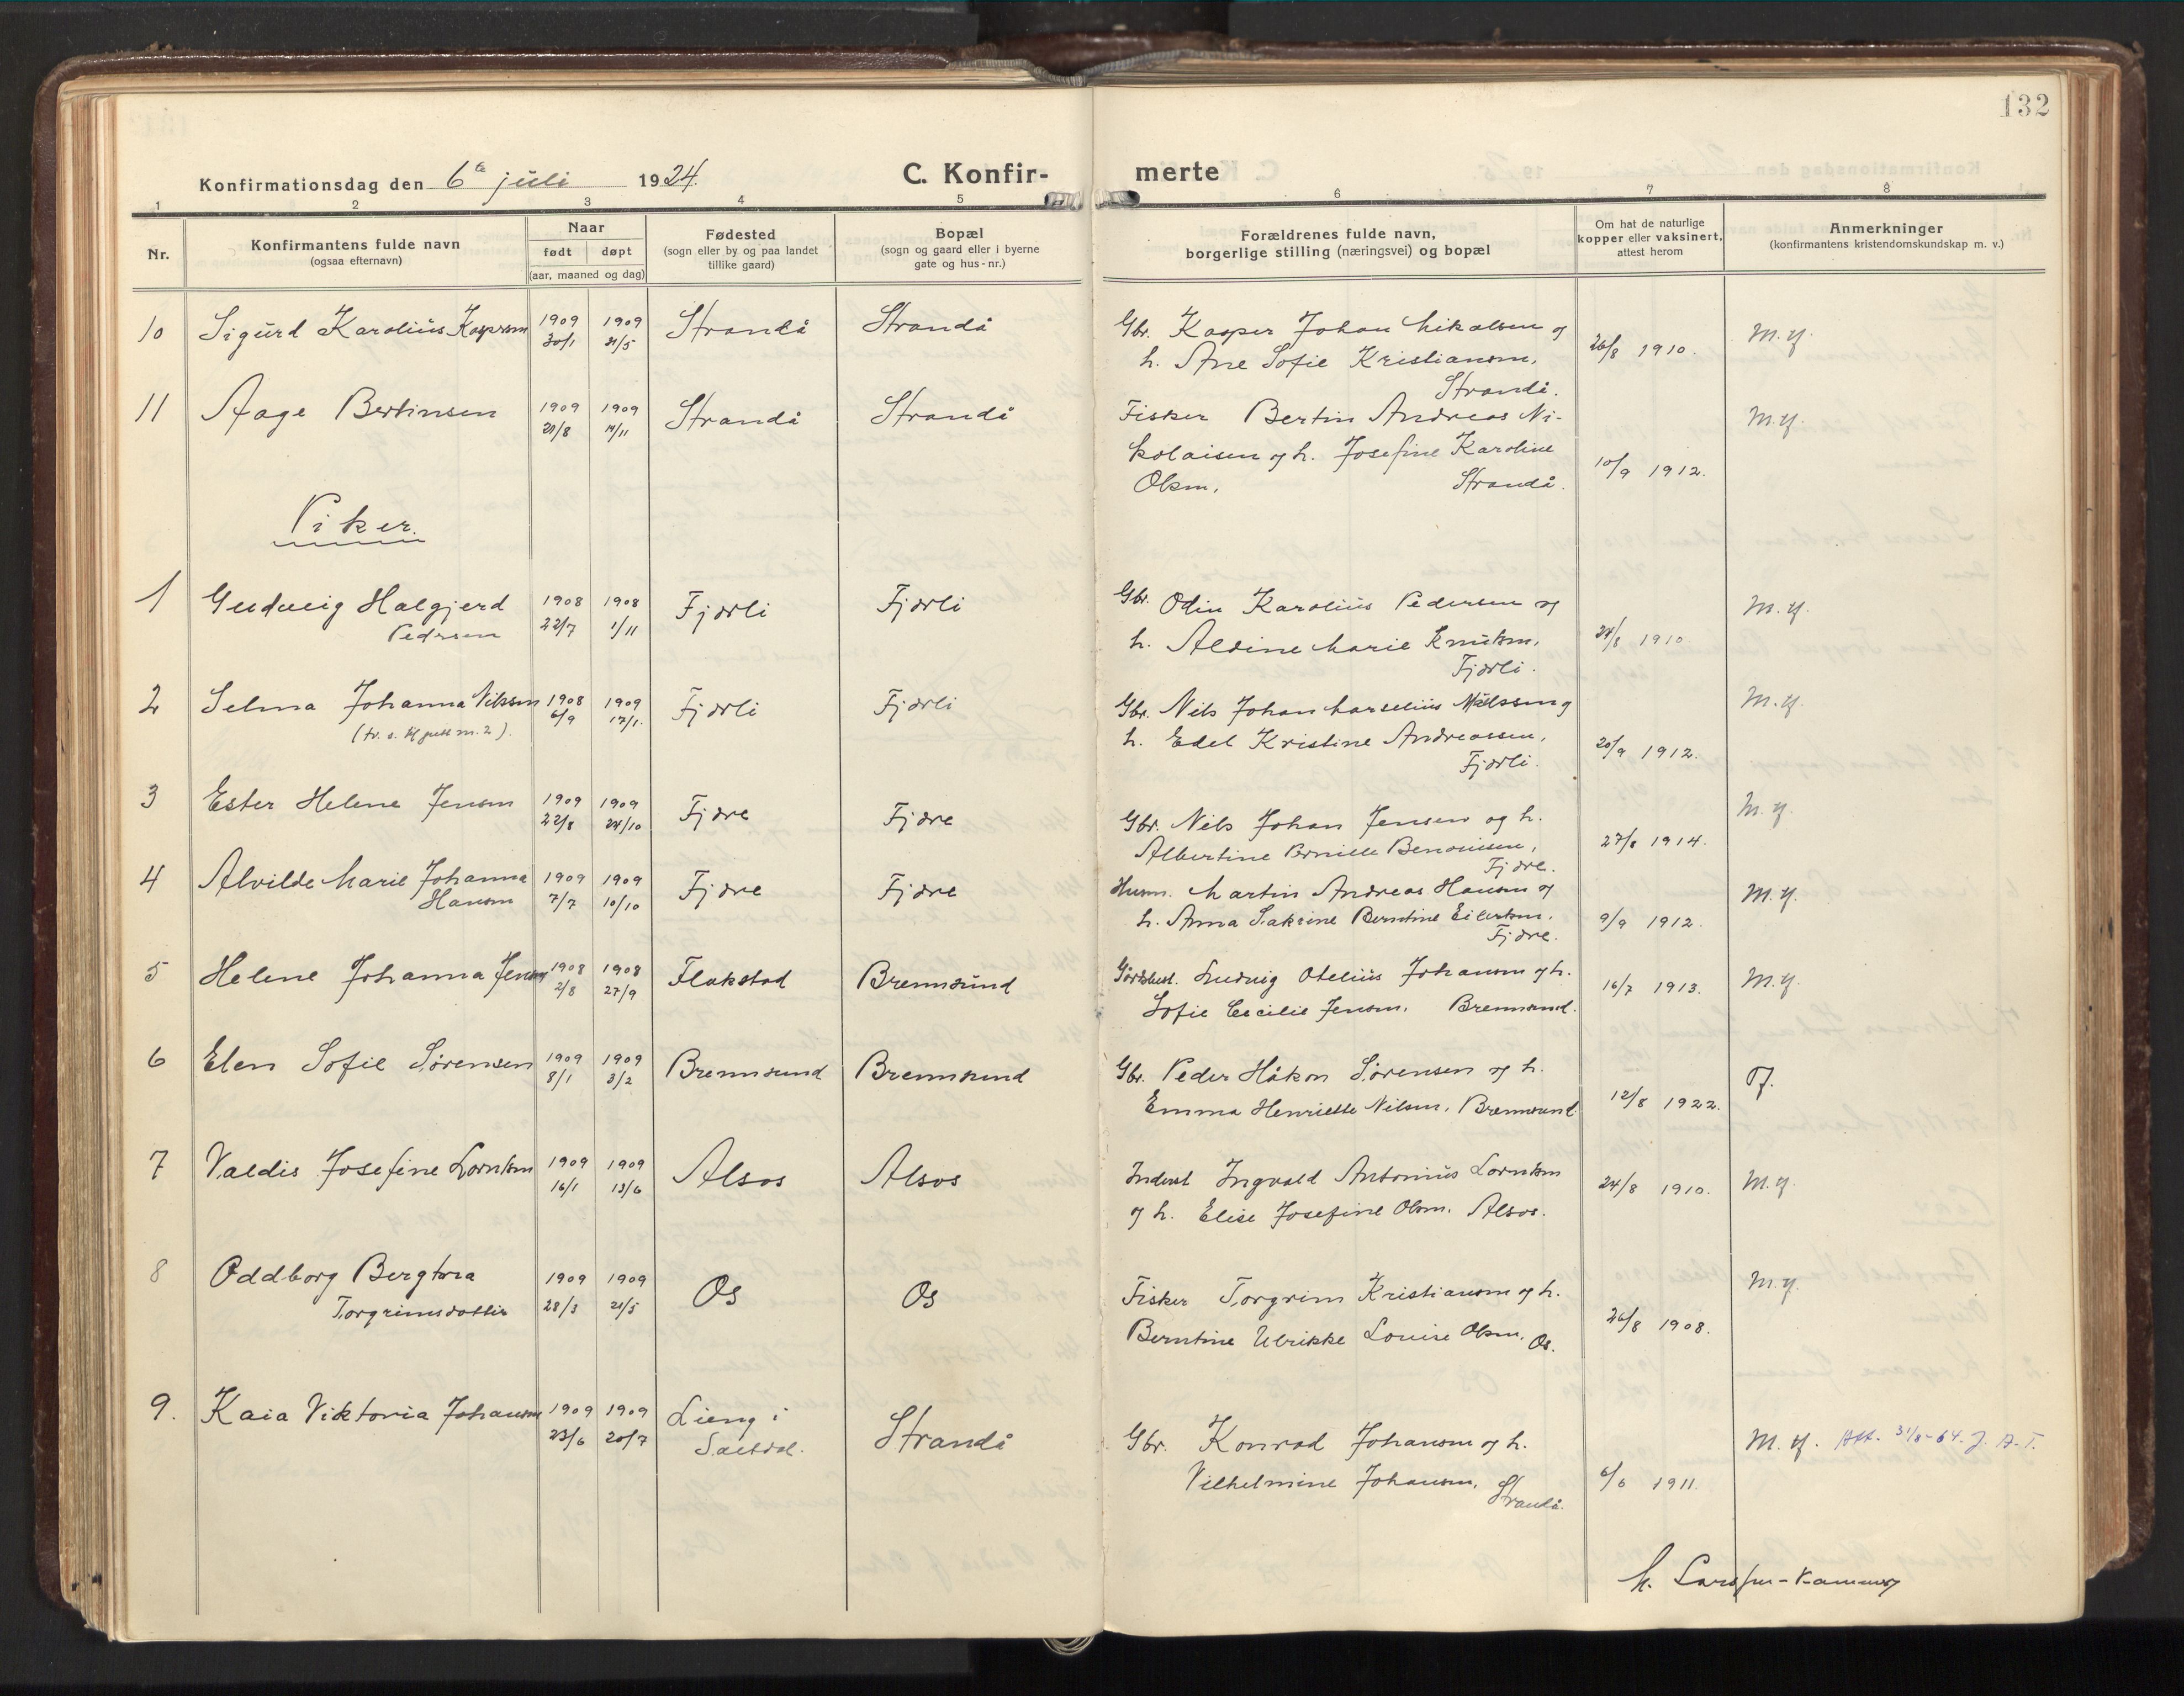 132
Konfirmationsdag den 6te juli 1924. C. Konfir- merte
1 2 3 4 5 6 7 8
Nr.
Konfirmantens fulde navn
(ogsaa efternavn)
Naar
født døpt
(aar, maaned og dag)
Fødested
(sogn eller by og paa landet
tillike gaard)
Bopæl
(sogn og gaard eller i byerne
gate og hus-nr.)
Forældrenes fulde navn,
borgerlige stilling (næringsvei) og bopæl
Om hat de naturlige
kopper eller vaksinert,
attest herom
Anmerkninger
(konfirmantens kristendomskundskap m. v.)
10 Sigurd Karolius Kaspersen 1909 1909 Strandå Strandå Gbr. Kasper Johan Mikalsen og
30/1 21/5 h. Ane Sofie Kristiansen, 26/8 1910. M.g.
Strandå.
11 Aage Bertinsen 1909 1909 Strandå Strandå Fisker Bertin Andreas Ni- M.g.
21/8 14/11 kolaisen og h. Josefine Karoline 10/9 1912.
Olsen, Strandå.
Piker.
1 Gudveig Halgjerd 1908 1908 Fjærli Fjærli Gbr. Odin Karolius Pedersen og M.g.
Pedersen 22/7 1/11 h. Aldine Marie Knutsen, 24/8 1910
Fjærli.
2 Selma Johanna Nilssen 1908 1909 Fjærli Fjærli Gbr. Nils Johan Marselius Nilssen og M.g.
6/9 17/1. h. Edel Kristine Andreassen, 20/9 1912.
Fjærli.
3 Ester Helene Jensen 1909 1909 Fjære Fjære Gbr. Nils Johan Jensen og h. M.g.
22/8 24/10 Albertine Benonisen, 27/8 1914.
Fjære.
4 Alvilde Marie Johanna 1909 1909 Fjære Fjære Husm. Martin Andreas Hansen og M.g.
Hansen 7/7 10/10 h. Anna Sakrine Berntine Eilertsen. 9/9 1912.
Fjære.
5 Helene Johanna Jensen 1908 1908 Flakstad Brennsund Ludvig Otelius Johansen og h. M.g.
2/8 27/9 Sofie Cecilie Jensen. Brennsund. 16/7 1913.
6 Elen Sofie Sørensen 1909 1909 Brennsund Brennsund Gbr. Peder Håkon Sørensen og h.
8/1 3/2 Emma Henriette Nilsen, Brennsund 12/8 1922. Tf.
7 Valdis Josefine Lorntsen 1909 1909 Alsos Alsos Inderst Ingvald Antonius Lorntsen
16/1 13/6 og h. Elise Josefine Olsen. Alsos. 24/8 1910. M.g.
8 Oddborg Bergtora 1909 1909 Os Os Fisker Torgrim Kristiansen og h. M.g.
Torgrimsdotter 28/3 21/5 Berntine Ulrikke Louise Olsen, Os. 26/8 1908.
9. Kaia Viktoria Johansen 1909 1909 Lieng i Strandå Gbr. Konrad Johansen og h. M.g. Att. 31/8-64. J. A. T.
23/6 20/7 Saltdal. Vilhelmine Johansen, 6/6 1911.
Strandå.